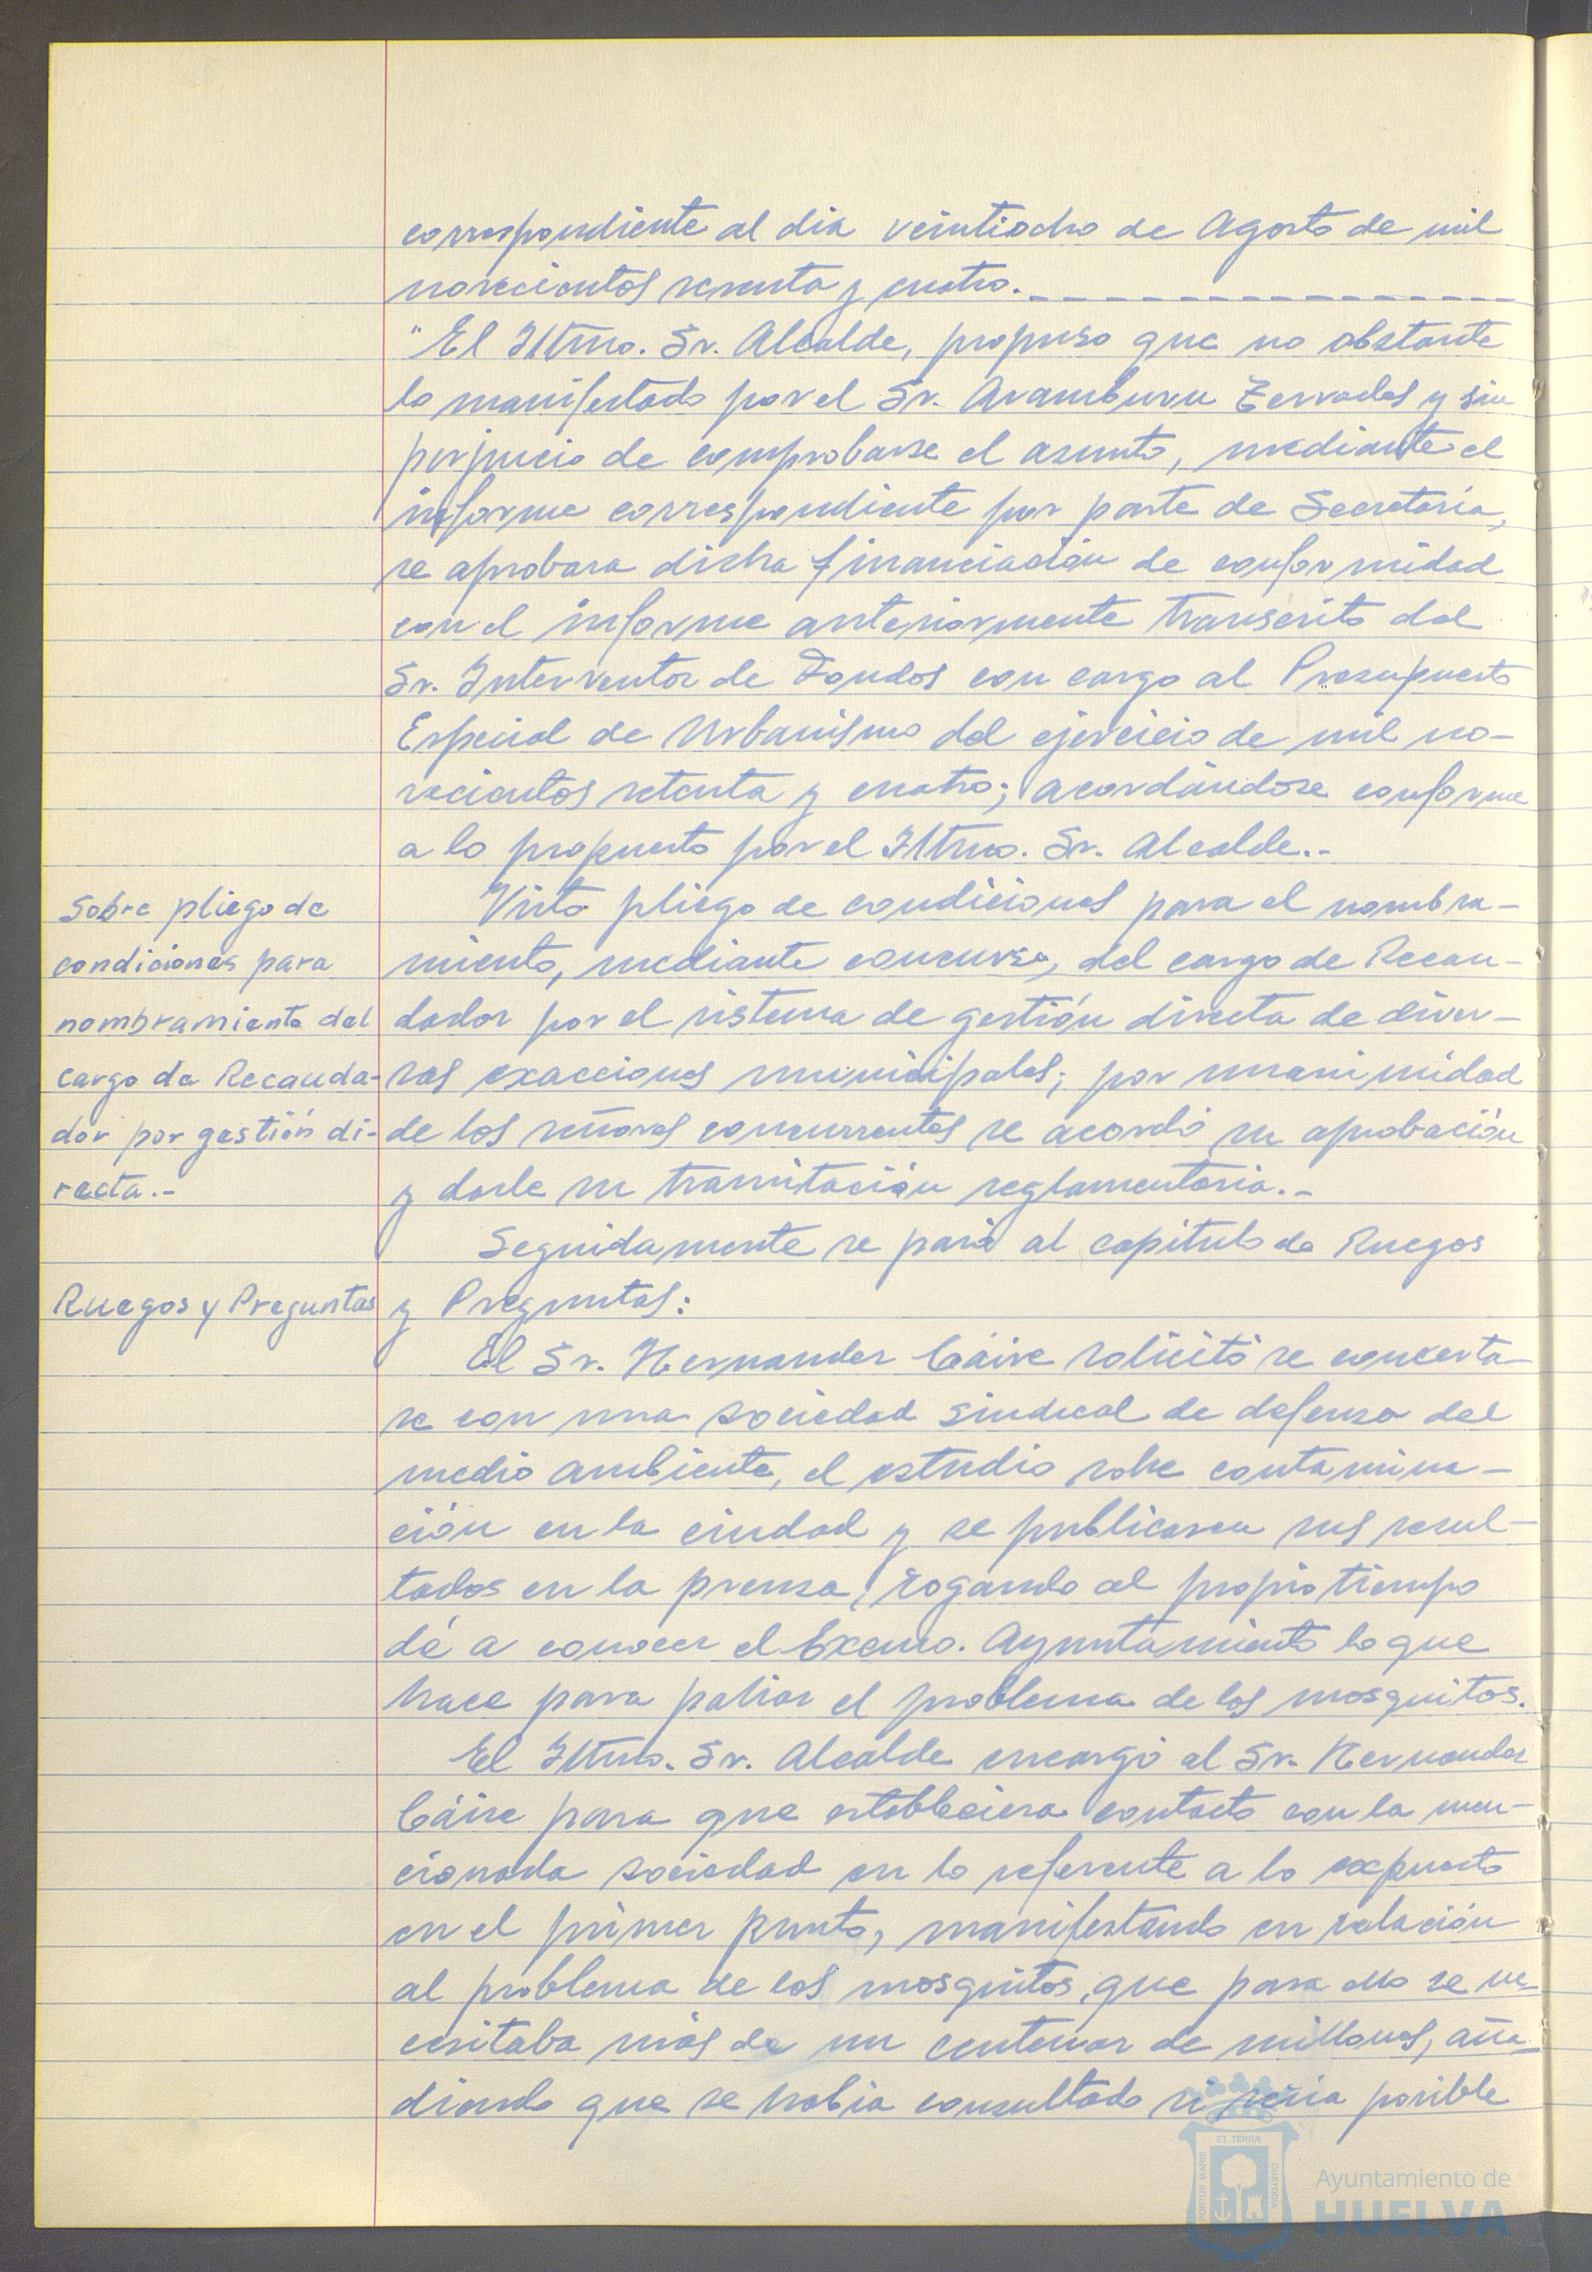 correspondiente al dia veintiocho de Agosto de mil
novecientos setenta y cuatro.
"El Iltmo. Sr. Alcalde, propuso que no obstante
lo manifestado por el Sr. Aramburu Terrades y sin
perjuicio de comprobarse el asunto, mediante el
informe correspondiente por parte de Secretaria,
se aprobara dicha financiación de conformidad
con el informe anteriormente transcrito del
Sr. Interventor de Fondos con cargo al Presupuesto
Especial de Urbanismo del ejercicio de mil no-
vecientos setenta y cuatro; acordándose conforme
a lo propuesto por el Iltmo. Sr. Alcalde.-
Sobre pliego de
condiciones para
nombramiento del
cargo de Recauda-
dor por gestión di-
recta.-
Visto pliego de condiciones para el nombra-
miento, mediante concurso, del cargo de Recau-
dador por el sistema de gestión directa de diver-
sas exacciones municipales; por unanimidad
de los señores concurrentes se acordó su aprobación
y darle su tramitación reglamentaria.-
Seguidamente se pasó al capitulo de Ruegos
Ruegos y Preguntas
y Preguntas:
El Sr. Hernandez Cáire solicitó se concerta-
se con una sociedad sindical de defensa del
medio ambiente, el estudio sobre contamina-
ción en la ciudad y se publicasen sus resul-
tados en la prensa, rogando al propio tiempo
dé a conocer el Excmo. Ayuntamiento lo que
hace para paliar el problema de los mosquitos.
El Iltmo. Sr. Alcalde encargó al Sr. Hernandez
Cáire para que estableciera contacto con la men-
cionada sociedad en lo referente a lo expuesto
en el primer punto, manifestando en relación
al problema de los mosquitos, que para ello se ne-
cesitaba más de un centenar de millones, aña-
diendo que se habia consultado si seria posible
PORTUS MARIS
ET TERRÆ
CUSTODIA
Ayuntamiento de
HUELVA